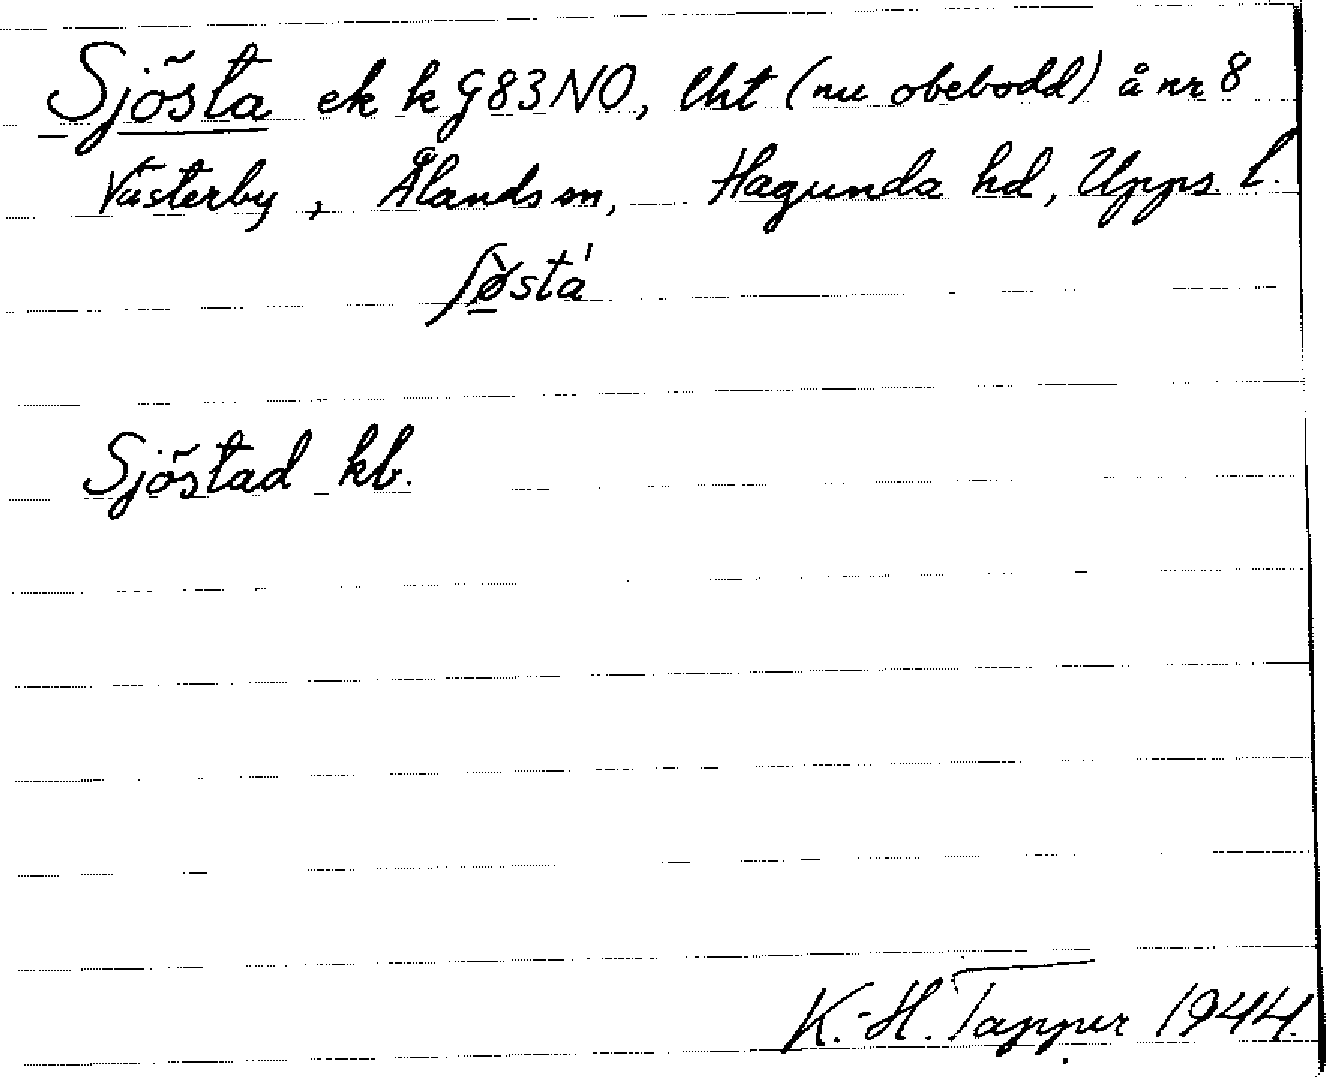 Sjösta ek k G83NO, lht (nu obebodd) å nr 8
Västerby, Ålands sn, Hagunda hd, Upps l.
ʃø̀stá
Sjöstad kb.
K.-H. Tapper 1944.